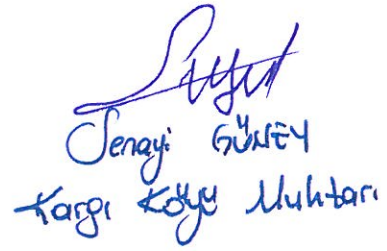 Senayi GÜNEY
Kargı Köyü Muhtarı